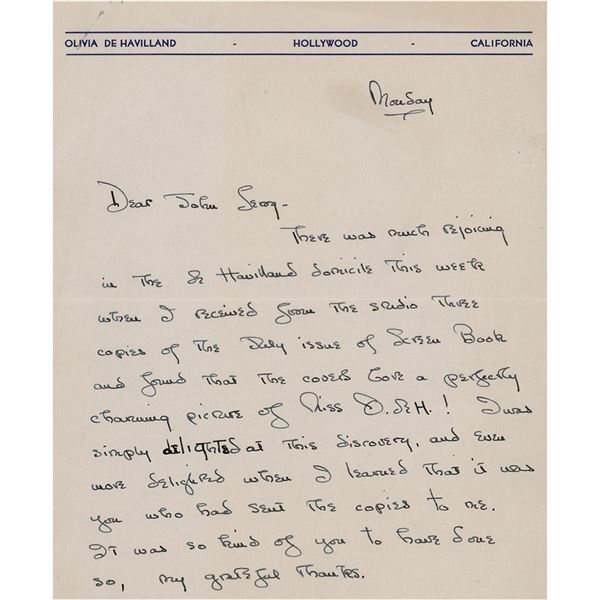 OLIVIA DE HAVILLAND - HOLLYWOOD - CALIFORNIA
Monday
Dear John Leroy -
There was much rejoicing
in the de Havilland domicile this week
when I received from the studio three
copies of the July issue of Screen Book
and found that the covers bore a perfectly
charming picture of Miss O. de H.! I was
simply delighted at this discovery, and even
more delighted when I learned that it was
you who had sent the copies to me.
It was so kind of you to have done
so, my grateful thanks.